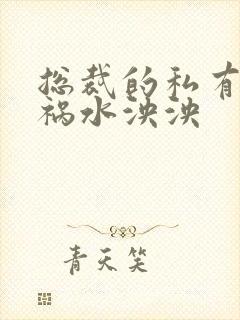 总裁的私有
祸水泱泱
青天笑